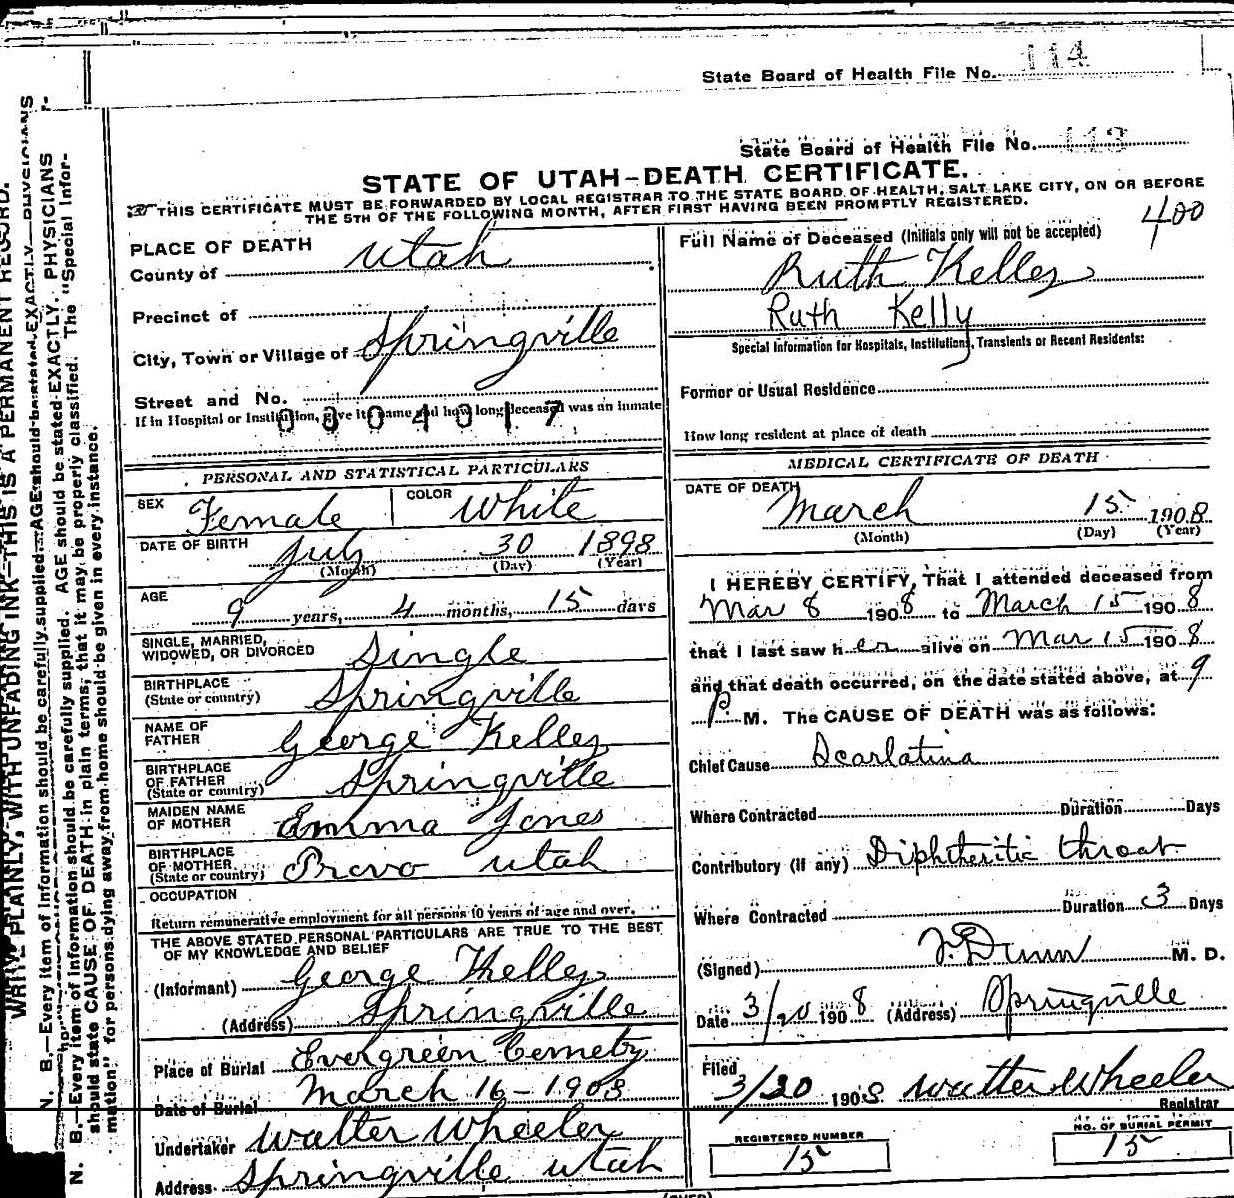 State Board of Health File No. 114
State Board of Health File No. 113
STATE OF UTAH—DEATH CERTIFICATE.
THIS CERTIFICATE MUST BE FORWARDED BY LOCAL REGISTRAR TO THE STATE BOARD OF HEALTH, SALT LAKE CITY, ON OR BEFORE
THE 5TH OF THE FOLLOWING MONTH, AFTER FIRST HAVING BEEN PROMPTLY REGISTERED.
400
PLACE OF DEATH
County of Utah
Precinct of
City, Town or Village of Springville
Street and No.
If in Hospital or Institution, give its name and how long deceased was an inmate
0804017
PERSONAL AND STATISTICAL PARTICULARS
SEX Female COLOR White
DATE OF BIRTH July 30 1898
(Month) (Day) (Year)
AGE 9 years, 4 months, 15 days
SINGLE, MARRIED,
WIDOWED, OR DIVORCED Single
BIRTHPLACE
(State or country) Springville
NAME OF
FATHER George Kelley
BIRTHPLACE
OF FATHER
(State or country) Springville
MAIDEN NAME
OF MOTHER Emma Jones
BIRTHPLACE
OF MOTHER
(State or country) Provo Utah
OCCUPATION
Return remunerative employment for all persons 10 years of age and over.
THE ABOVE STATED PERSONAL PARTICULARS ARE TRUE TO THE BEST
OF MY KNOWLEDGE AND BELIEF
(Informant) George Kelley
(Address) Springville
Place of Burial Evergreen Cemetry
Date of Burial March 16 - 1908
Undertaker Walter Wheeler
Address Springville Utah
Full Name of Deceased (Initials only will not be accepted)
Ruth Kelley
Ruth Kelly
Special Information for Hospitals, Institutions, Transients or Recent Residents:
Former or Usual Residence
How long resident at place of death
MEDICAL CERTIFICATE OF DEATH
DATE OF DEATH
March 15 1908
(Month) (Day) (Year)
I HEREBY CERTIFY, That I attended deceased from
Mar 8 1908 to March 15 1908
that I last saw her alive on Mar 15 1908
and that death occurred, on the date stated above, at 9
P M. The CAUSE OF DEATH was as follows:
Chief Cause Scarlatina
Where Contracted Duration Days
Contributory (if any) Diphtheritic throat
Where Contracted Duration 3 Days
(Signed) Dunn M. D.
Date 3/20 1908 (Address) Springville
Filed 3/20 1908 Walter Wheeler
Registrar
REGISTERED NUMBER
15
NO. OF BURIAL PERMIT
15
(OVER)
WRITE PLAINLY, WITH UNFADING INK—THIS IS A PERMANENT RECORD.
N. B.—Every item of information should be carefully supplied. AGE should be stated EXACTLY. PHYSICIANS
N. B.—Every item of information should be carefully supplied. AGE should be stated EXACTLY. PHYSICIANS
should state CAUSE OF DEATH in plain terms, that it may be properly classified. The "Special Infor-
mation" for persons dying away from home should be given in every instance.